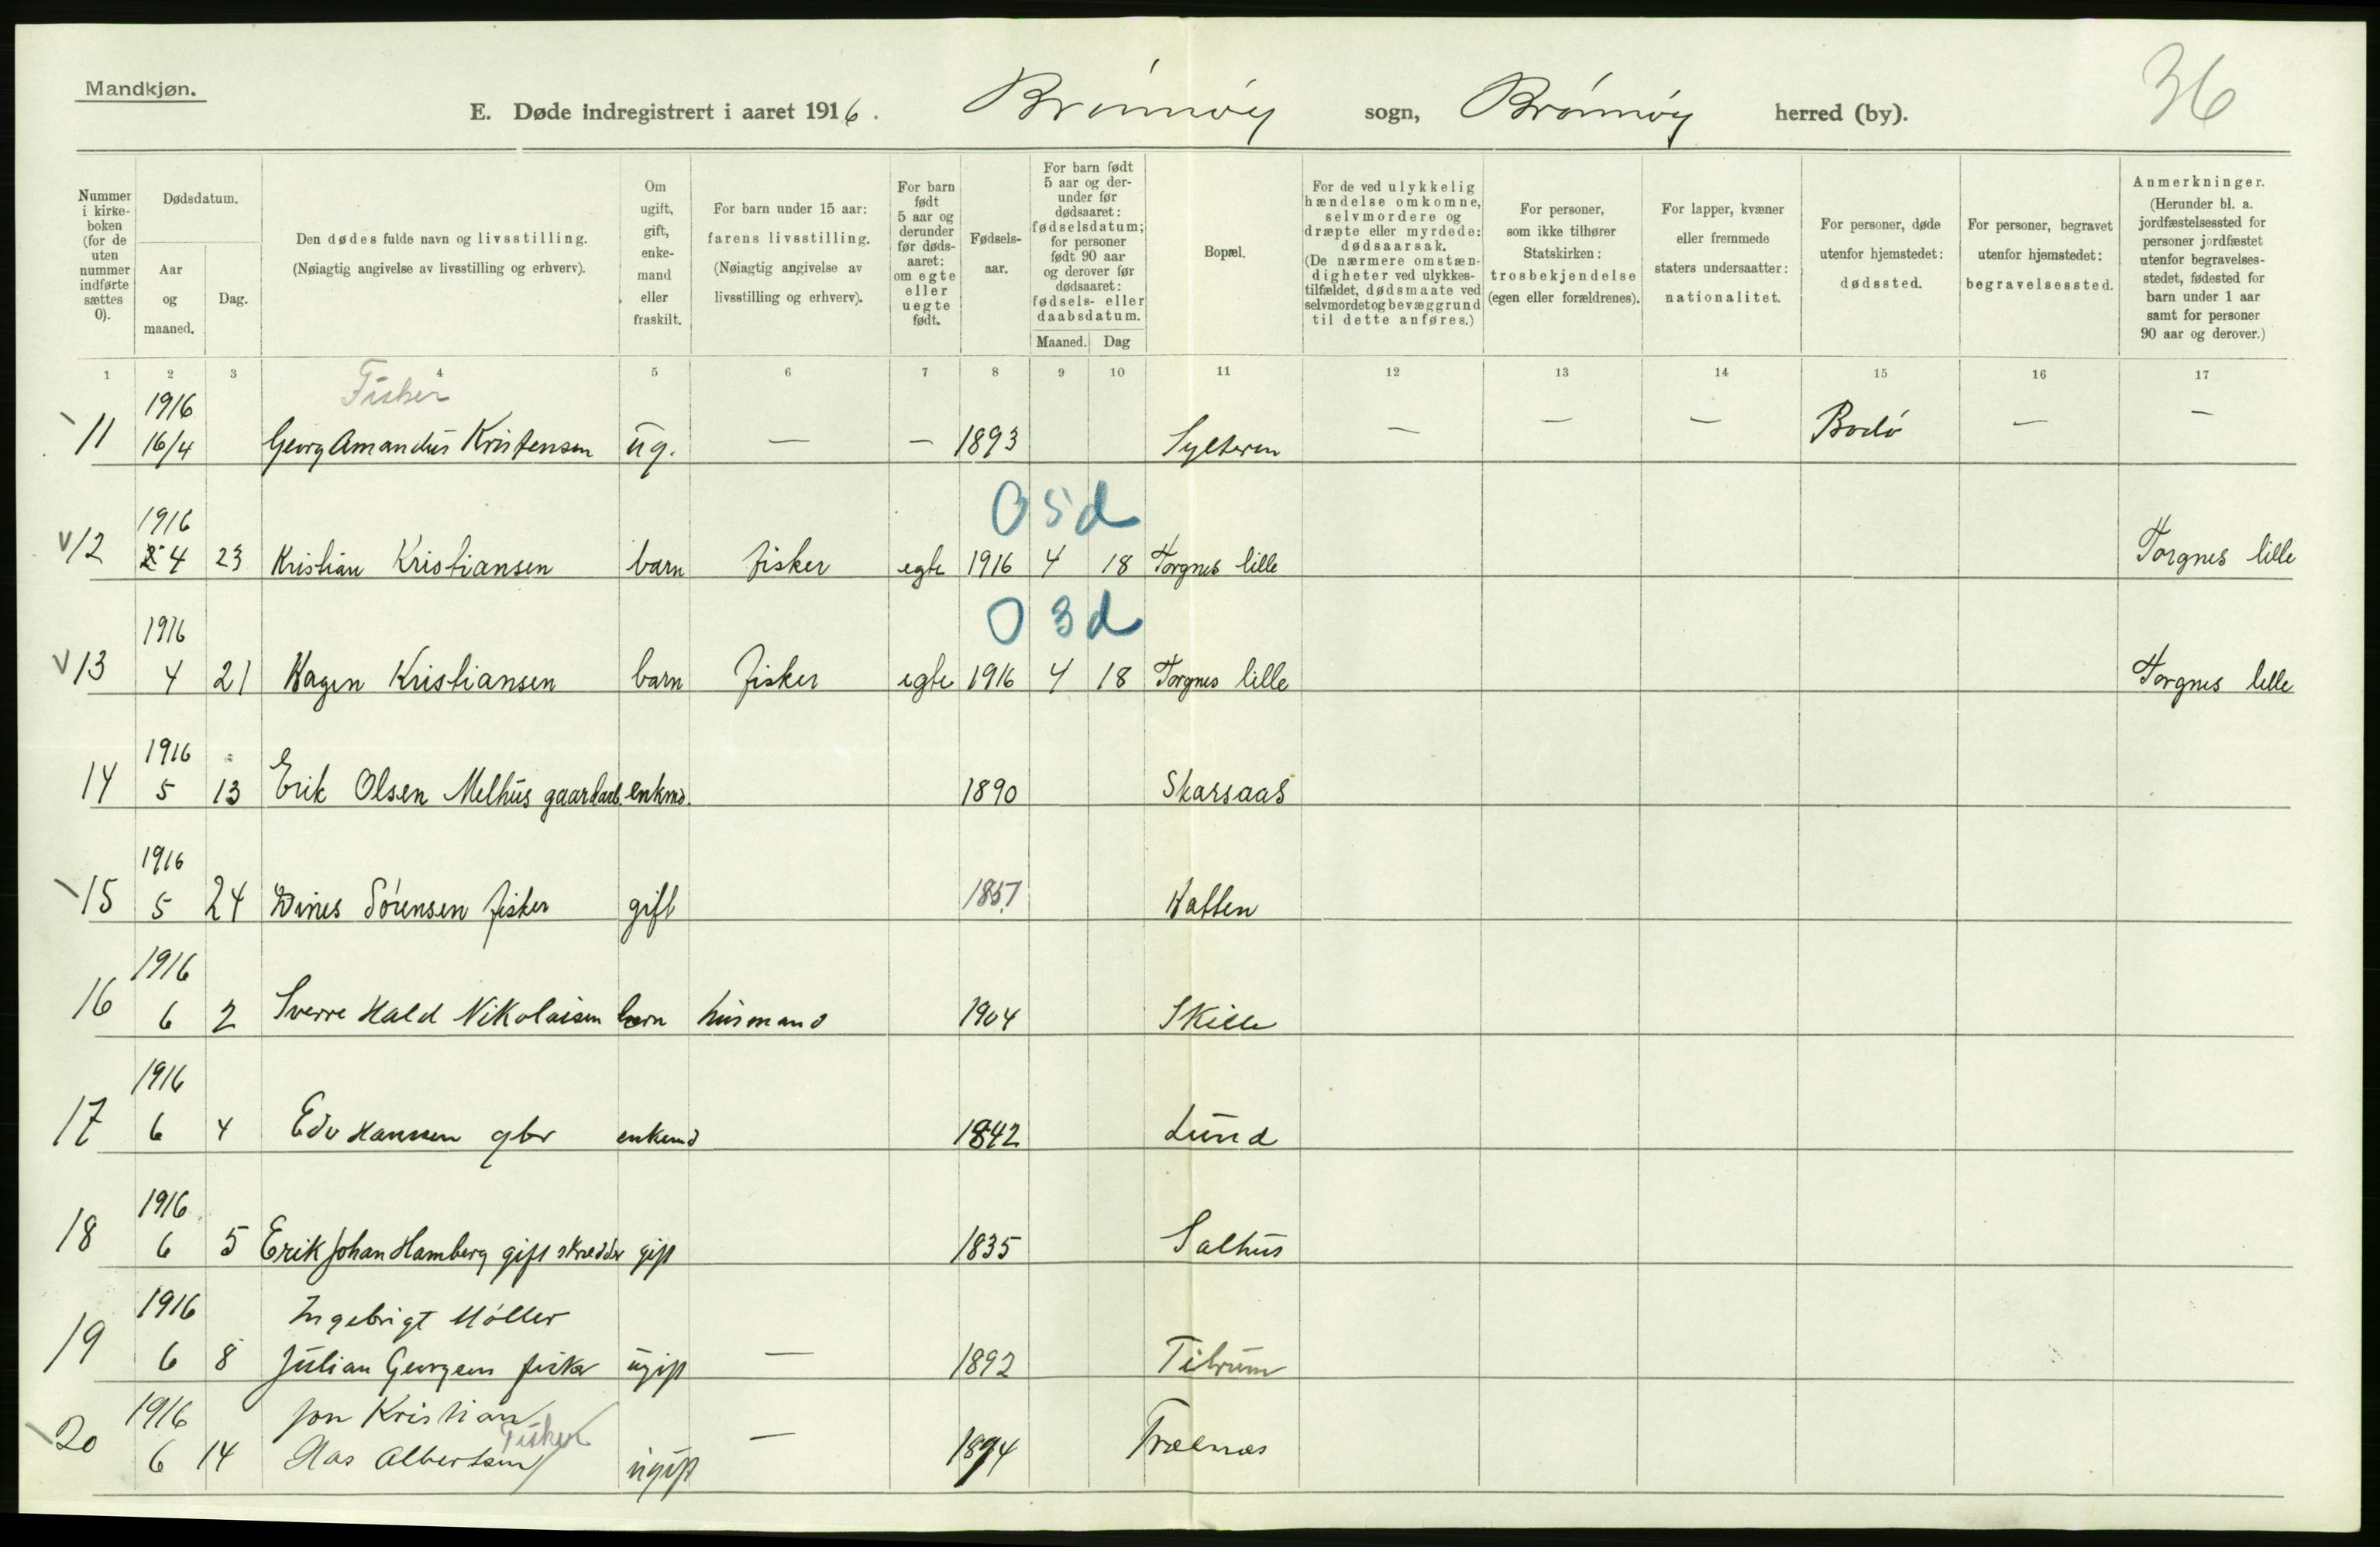 Mandkjøn.
E. Døde indregistrert i aaret 1916. Brønnøy sogn, Brønnøy herred (by). 36
Nummer i kirkeboken (for de uten nummer indførte sættes 0).
Dødsdatum.
Aar og maaned.
Dag.
Den dødes fulde navn og livsstilling.
(Nøiagtig angivelse av livsstilling og erhverv).
Om ugift, gift, enkemand eller fraskilt.
For barn under 15 aar: farens livsstilling.
(Nøiagtig angivelse av livsstilling og erhverv).
For barn født 5 aar og derunder før dødsaaret: om egte eller uegte født.
Fødselsaar.
For barn født 5 aar og derunder før dødsaaret: fødselsdatum; for personer født 90 aar og derover før dødsaaret: fødsels- eller daabsdatum.
Maaned. Dag
Bopæl.
For de ved ulykkelig hændelse omkomne, selvmordere og dræpte eller myrdede: dødsaarsak.
(De nærmere omstændigheter ved ulykkestilfældet, dødsmaate ved selvmordet og bevæggrund til dette anføres.)
For personer, som ikke tilhører Statskirken: trosbekjendelse (egen eller forældrenes).
For lapper, kvæner eller fremmede staters undersaatter: nationalitet.
For personer, døde utenfor hjemstedet: dødssted.
For personer, begravet utenfor hjemstedet: begravelsessted.
Anmerkninger.
(Herunder bl. a. jordfæstelsessted for personer jordfæstet utenfor begravelsesstedet, fødested for barn under 1 aar samt for personer 90 aar og derover.)
1 2 3 4 5 6 7 8 9 10 11 12 13 14 15 16 17
1916 Fisker
11 16/4 Georg Amandus Kristensen ug. — — 1893 Sylteren — — — Bodø — —
1916 0 5 d
12 4 23 Kristian Kristiansen barn fisker egte 1916 4 18 Torgnes lille Torgnes lille
1916 0 3 d
13 4 21 Hagen Kristiansen barn fisker egte 1916 4 18 Torgnes lille Torgnes lille
1916
14 5 13 Erik Olsen Melhus gaardarb. enkmd. 1890 Skarsaas
1916
15 5 24 Dines Sørensen fisker gift 1857 Hatten
1916
16 6 2 Sverre Hald Nikolaisen barn husmand 1904 Skille
1916
17 6 4 Edv Hansen gbr enkemd 1842 Lund
1916
18 6 5 Erik Johan Hamberg gift skrædder gift 1835 Salhus
1916 Ingebrigt Møller
19 6 8 Julian Georgsen fisker ugift — 1892 Tilrum
1916 Jon Kristian Fisker
20 6 14 Has Albertsen ugift — 1894 Trælnæs